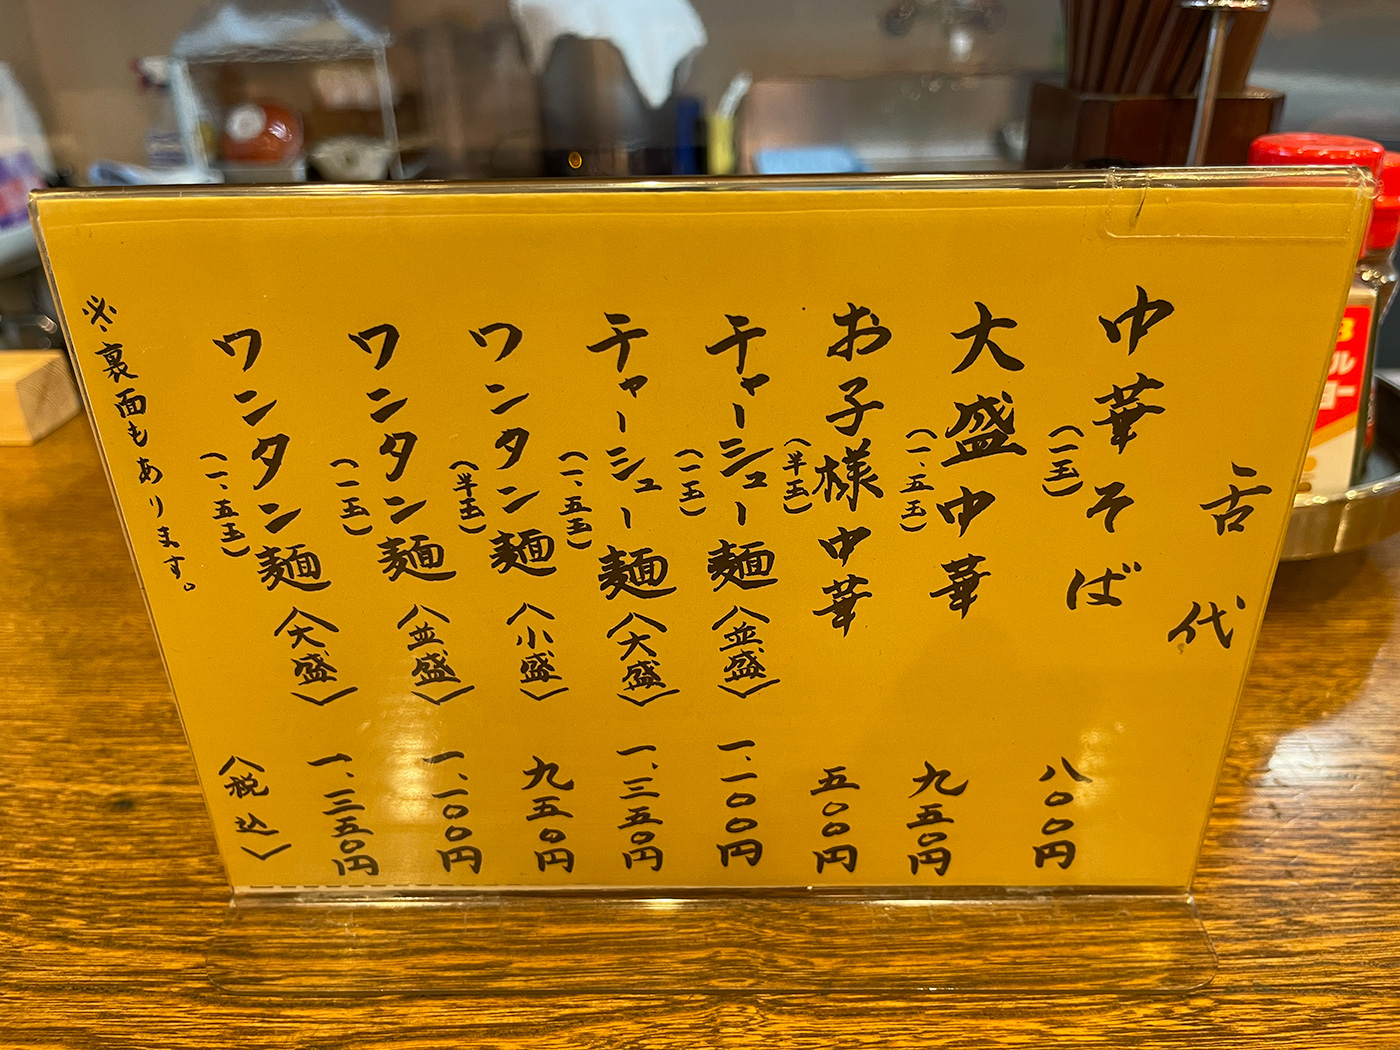 舌代
中華そば
(一玉)
八〇〇円
大盛中華
(一、五玉)
九五〇円
お子様中華
(半玉)
五〇〇円
チャーシュー麺〈並盛〉
(一玉)
一、一〇〇円
チャーシュー麺〈大盛〉
(一、五玉)
一、三五〇円
ワンタン麺〈小盛〉
(半玉)
九五〇円
ワンタン麺〈並盛〉
(一玉)
一、一〇〇円
ワンタン麺〈大盛〉
(一、五玉)
一、三五〇円
〈税込〉
※、裏面もあります。